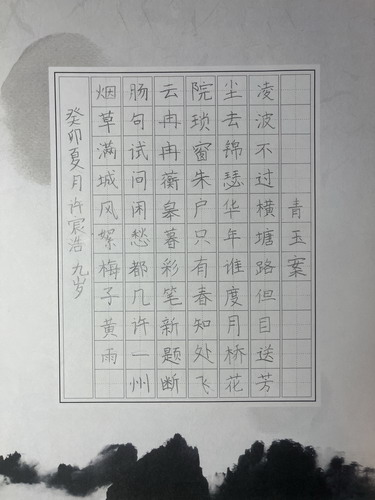 青玉案
凌波不过横塘路但目送芳
尘去锦瑟华年谁度月桥花
院琐窗朱户只有春知处飞
云冉冉蘅皋暮彩笔新题断
肠句试问闲愁都几许一州
烟草满城风絮梅子黄雨
癸卯夏月许宸浩九岁